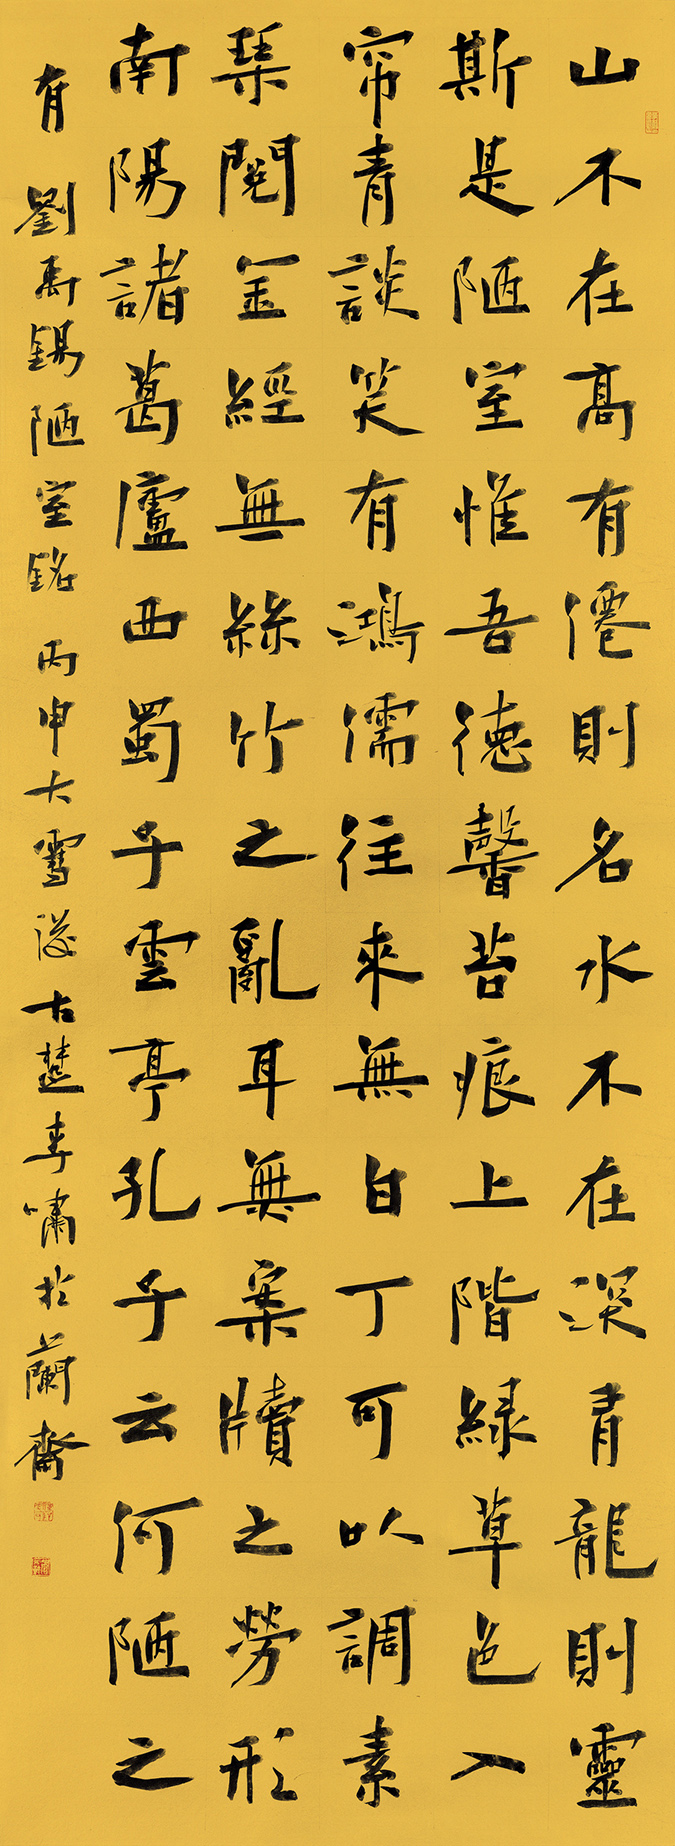 山不在高有僊則名水不在深有龍則靈
斯是陋室惟吾德馨苔痕上階緑草色入
帘青談笑有鴻儒往來無白丁可以調素
琴閱金經無絲竹之亂耳無案牘之勞形
南陽諸葛廬西蜀子雲亭孔子云何陋之
有 劉禹錫陋室銘 丙申大雪後古楚李嘯於蘭齋